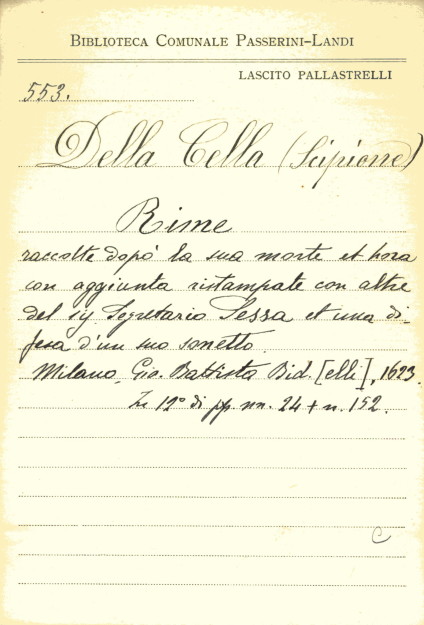 BIBLIOTECA COMUNALE PASSERINI-LANDI
LASCITO PALLASTRELLI
553.
Della Cella (Scipione)
Rime
raccolte dopò la sua morte et hora
con aggiunta ristampate con altre
del sig. Segretario Sessa et una di-
fesa d'un suo sonetto.
Milano, Gio. Battista Bid. [elli], 1623.
In 12° di pp. nn. 24 + n. 152.
C